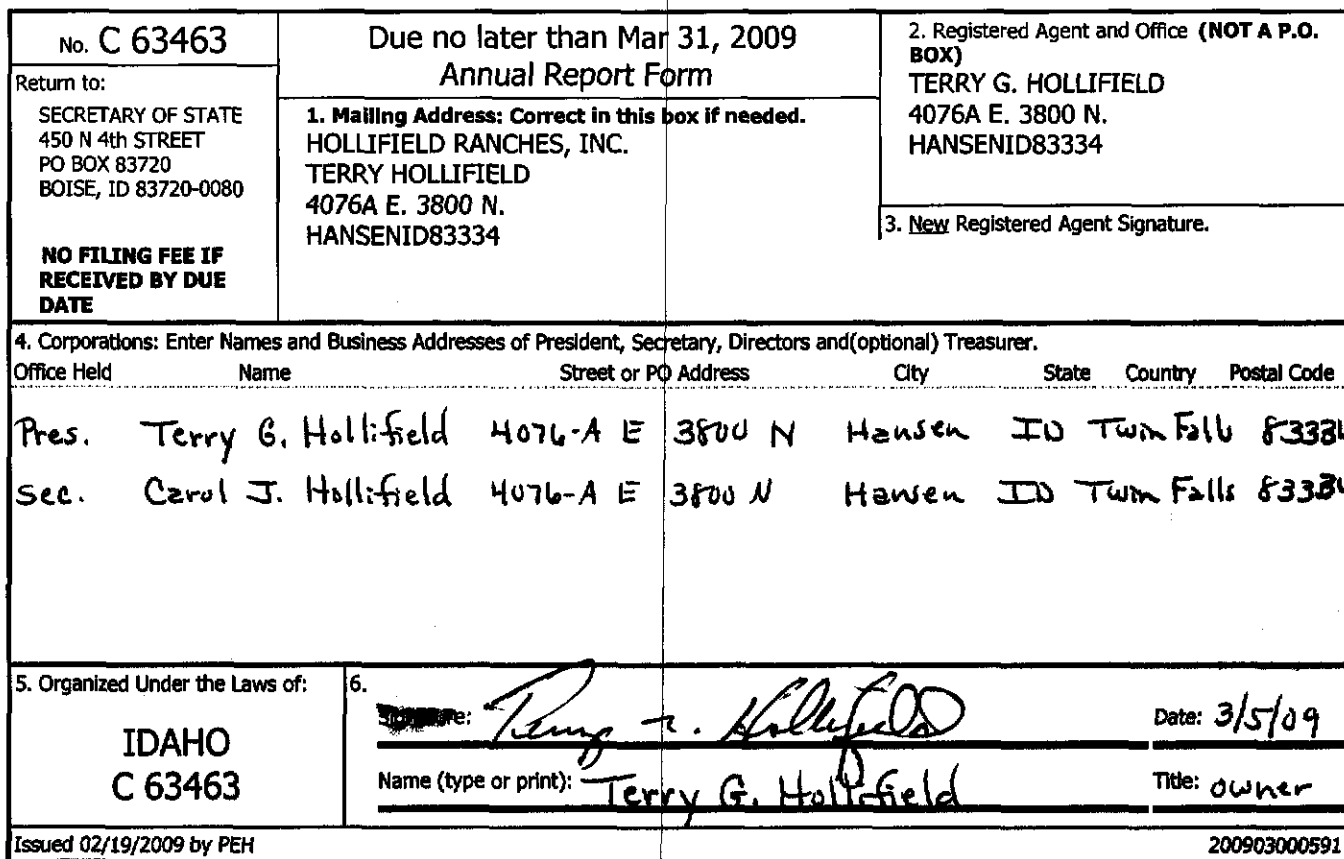 No. C 63463
Return to:
SECRETARY OF STATE
450 N 4th STREET
PO BOX 83720
BOISE, ID 83720-0080
NO FILING FEE IF
RECEIVED BY DUE
DATE
Due no later than Mar 31, 2009
Annual Report Form
1. Mailing Address: Correct in this box if needed.
HOLLIFIELD RANCHES, INC.
TERRY HOLLIFIELD
4076A E. 3800 N.
HANSENID83334
2. Registered Agent and Office (NOT A P.O.
BOX)
TERRY G. HOLLIFIELD
4076A E. 3800 N.
HANSENID83334
3. New Registered Agent Signature.
4. Corporations: Enter Names and Business Addresses of President, Secretary, Directors and(optional) Treasurer.
Office Held Name Street or PO Address City State Country Postal Code
Pres. Terry G. Hollifield 4076-A E 3800 N Hansen ID Twin Falls 83334
Sec. Carol J. Hollifield 4076-A E 3800 N Hansen ID Twin Falls 83334
5. Organized Under the Laws of:
IDAHO
C 63463
6.
Signature: Terry G. Hollifield Date: 3/5/09
Name (type or print): Terry G. Hollifield Title: owner
Issued 02/19/2009 by PEH 200903000591